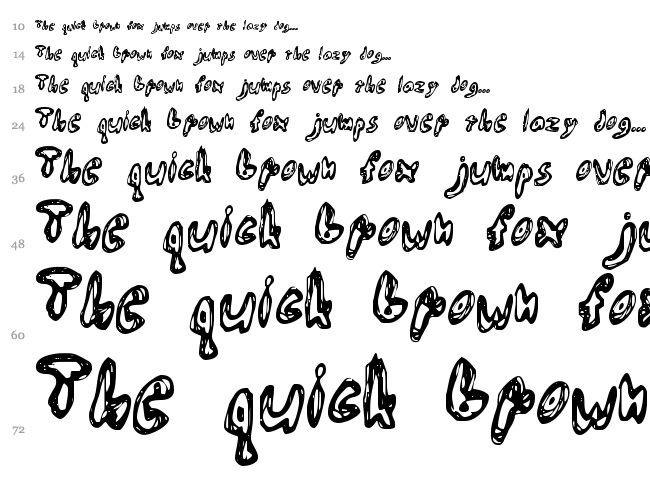 10 The quick brown fox jumps over the lazy dog...
14 The quick brown fox jumps over the lazy dog...
18 The quick brown fox jumps over the lazy dog...
24 The quick brown fox jumps over the lazy dog...
36 The quick brown fox jumps over
48 The quick brown fox ju
60 The quick brown fox
72 The quick brown